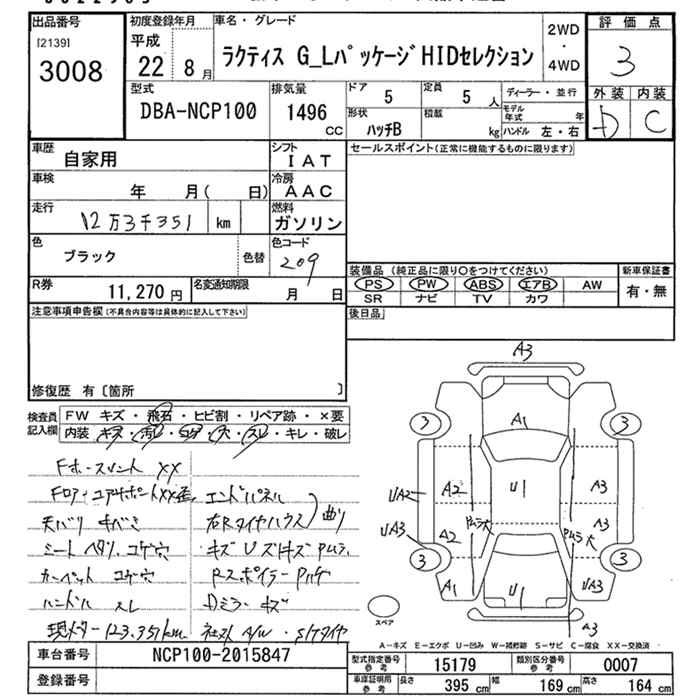 出品番号
[2139]
3008
初度登録年月
平成
22 8月
車名・グレード
ラクティス G_Lパッケージ HIDセレクション
2WD
・
4WD
評価点
3
外装 内装
D C
型式
DBA-NCP100
排気量
1496
CC
ドア
5
定員
5 人
形状
ハッチB
積載
kg
ディーラー・並行
モデル年式 年
ハンドル 左・右
車歴
自家用
シフト
IAT
車検
年 月( 日)
冷房
AAC
走行
12万3千351 km
燃料
ガソリン
色
ブラック
色替
色コード
209
R券
11,270 円
名変通知期限
月 日
セールスポイント(正常に機能するものに限ります)
装備品 (純正品に限り○をつけてください)
PS PW ABS エアB AW
SR ナビ TV カワ
新車保証書
有・無
後日品
注意事項申告欄(不具合内容等は具体的に記入して下さい)
修復歴 有〔箇所 〕
検査員記入欄
FW キズ・飛石・ヒビ割・リペア跡・×要
内装・キズ・汚レ・コゲ・穴・スレ・キレ・破レ
XX
エンドパネル
天バリ キバミ
右Rタイヤハウス
曲り
シート ヘタリ、コゲ穴
カーペット コゲ穴
Rスポイラー
ハンドル スレ
Dミラー キズ
現メーター 123,351km
A/W・S/Tタイヤ
A3
3 3
A1
UA2 A2 U1 A3
UA3 A2 A3
3 3
A1 U1 UA3
A3
スペア
A-キズ E-エクボ U-凹み W-補修跡 S-サビ C-腐食 XX-交換済
車台番号
NCP100-2015847
登録番号
型式指定番号 参考
15179
類別区分番号 参考
0007
車庫証明用 参考
長さ 395 cm
幅 169 cm
高さ 164 cm